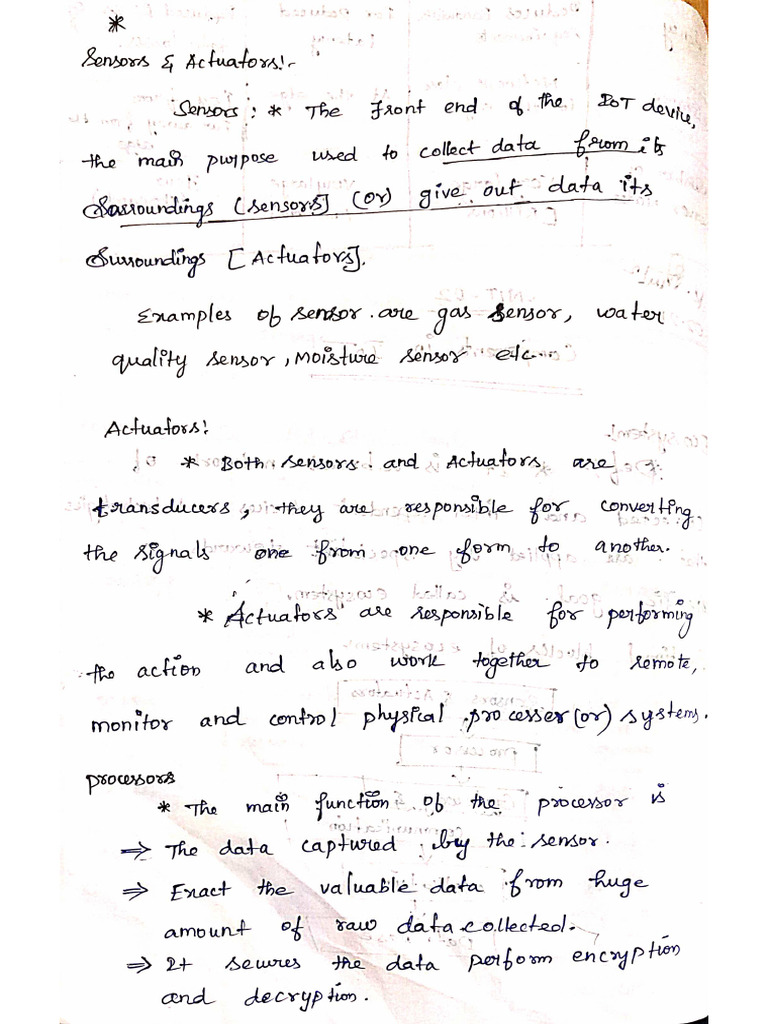 *
Sensors & Actuators:-
Sensors: * The Front end of the IoT device,
the main purpose used to collect data from its
Sarroundings [sensors] (or) give out data its
Surroundings [Actuators].
Examples of sensor are gas sensor, water
quality sensor, Moisture sensor etc..
Actuators:
* Both sensors and Actuators are
transducers, they are responsible for converting
the signals one from one form to another.
* Actuators are responsible for performing
the action and also work together to remote,
monitor and control physical processer (or) systems.
processors
* The main function of the processor is
⇒ The data captured by the sensor.
⇒ Exact the valuable data from huge
amount of raw data collected.
⇒ It secures the data perform encryption
and decryption.